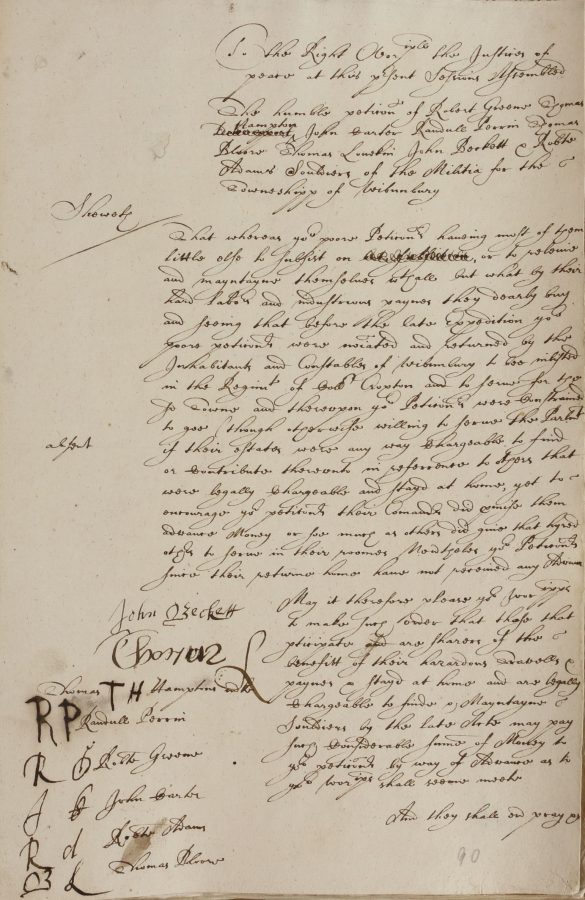 To the Right Wor:ipll the Justices of
peace at this psent Sessions Assembled
The humble petition of Robert Greene Thomas
Hampton John Carter Randull Perrin Thomas
Bloore Thomas John Beckett & Robte
Adams Souldiers of the Militia for the
Towneshipp of Wibunbury
Sheweth
That whereas yor poore Petitionrs haveing most of them
little else to subsist on or to releeve
and mayntayne themselves wthall but what by their
hard labor and industrious paynes they dearly buy
and seeing that before the late Expedition yor
poore petitionrs were and returned by the
Inhabitants and Constables of Wibunbury to bee inlisted
in the Regimt of Coll Croxton and to serve for the
sd Towne and thereupon yor Petitionrs were Constrained
to goe (though otherwise willing to serve the Parlnt
absent
if their estates were any way Chargeable to find
or Contribute thereunto in refference to others that
were legally Chargeable and stayd at home yet to
encourage yor petitionrs their Comandrs did pmise them
advance Money or soe much as others did give that hyred
othrs to serve in their roomes Neverthelesse yor Petitionrs
since their returne home have not received any Advance
May it therefore please yor Woripps
to make such order that those that
pticipate and are sharers of the
benefitt of their hazardous Travells &
paynes & stayd at home and are legally
Chargeable to finde & Mayntayne
Souldiers by the late Acte may pay
such Considerable some of Money to
yor petitionrs by way of Advance as to
yor Worips shall seeme meete
And they shall ev pray &c
John Beckett
Thomas TH Hampton
RP Randull Perrin
R Robte Greene
J John Carter
R Robte Adams
Thomas Bloore
90